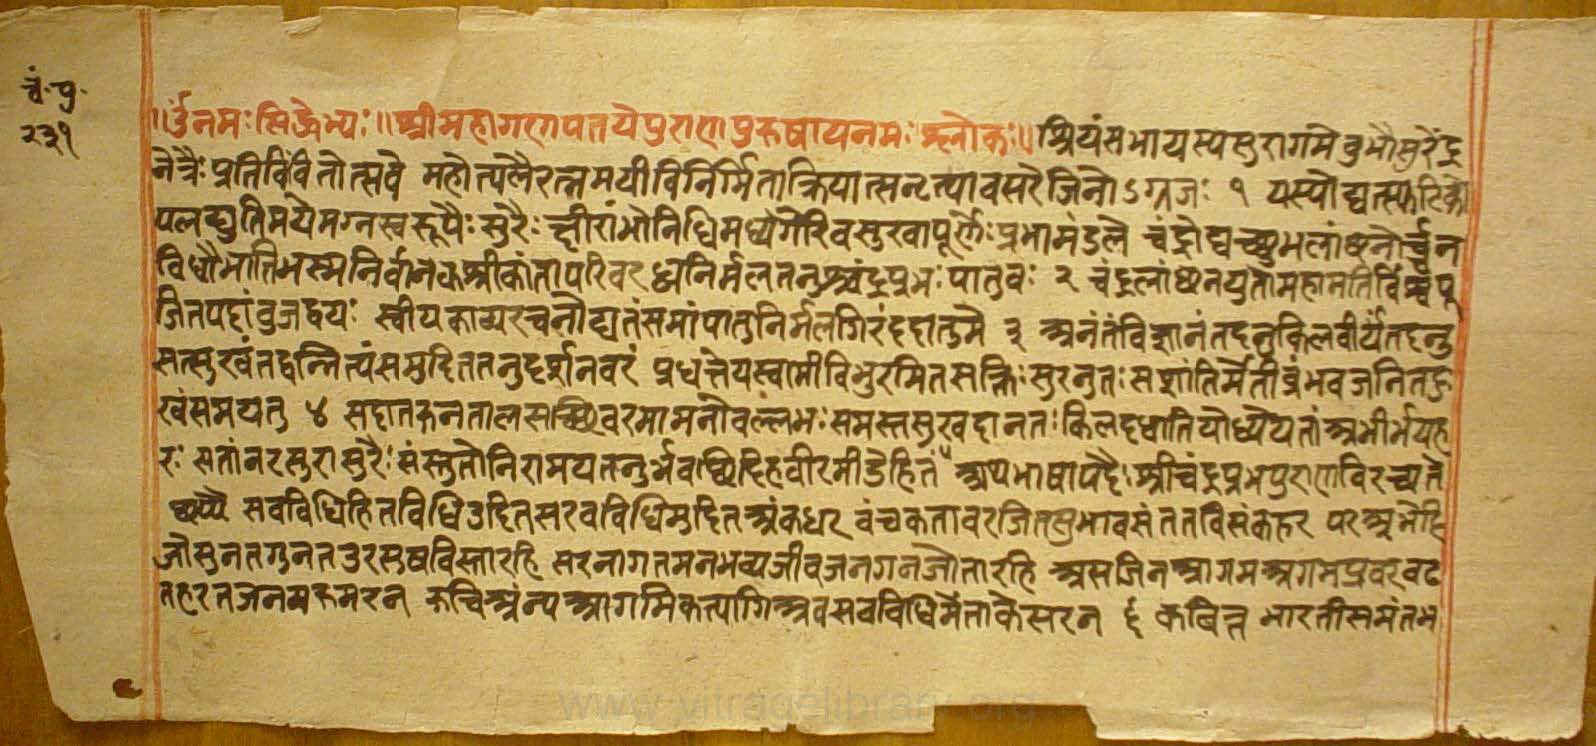 चं॰पु॰
२३१
॥ॐनमःसिद्धेभ्यः॥श्रीमहागणपतयेपुराणपुरुषायनमः श्लोकः॥ श्रियंसभायस्यसुरागमेबुभौसुरेंद्र
नेत्रैः प्रतिविंवितोत्सवे महोत्पलैरत्नमयीविनिर्मिताक्रियात्सनृत्यावसरेजिनोऽग्रजः १ यस्योद्यत्स्फटिको
पलद्युतिमयेमग्नस्वरूपैः सुरैः क्षीरांभोनिधिमध्यगैरिवसुखापूर्णैः प्रभामंडले चंद्रोद्यच्छुभलांछनोर्च्चन
विधौभातिभस्मनिर्वानेकश्रीकांतापरिवरध्वनिर्मलतनुश्चंद्रप्रभः पातुवः २ चंद्रलांछनयुतोमहामतिर्विश्वपू
जितपदांवुजद्वयः स्वीयकाव्यरचनौद्यतंसमांपातुनिर्मलगिरंददातुमे ३ अनंतंविज्ञानंतदनुकिलवीर्यंतदनु
सत्सुखंतद्वन्नित्यंसमुदिततनुदर्शनवरं प्रधत्तेयस्वामीविभुरमितसक्तिः सुरनुतः सशांतिर्मेतीव्रंभवजनितदुः
खंसमयतु ४ सदातरुनतालसच्छिवरमामनोवल्लभः समस्तसुखदानतः किलदधातियोध्येयतां अभीर्भयह
रः सतांनरसुरासुरैः संस्तुतोनिरामयतनुर्भवछिदिहवीरमीडेहितं ५ अथभाषापदैः श्रीचंद्रप्रभपुराणविरच्यते
छप्पै सवविधिहितविधिउदितसरवविधिमुदितअंकधर वंचकतावरजितसुभावसंततविसंकहर परअूमेहि
जोसुनतगुनतउरसुषविस्तारहि सरनागतमनभव्यजीवजनगनजौतारहि असजिनआगमअगमप्रवरवट
तहरतजनमरुमरन रुचिअंन्यआगमिकत्यागिअवसवविधिमैताकेसरन ६ कबित्त भारतीसमंतभ